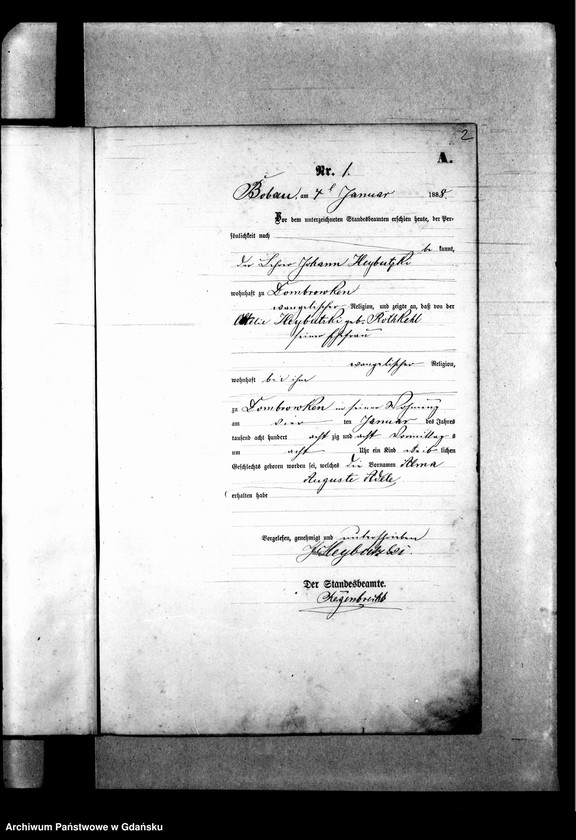 2
A.
Nr. 1.
Bobau, am 4 Januar 1888.
Vor dem unterzeichneten Standesbeamten erschien heute, der Per-
sönlichkeit nach
be kannt,
der Lehrer Johann Heybutzki
wohnhaft zu Dombrowken
evangelischer Religion, und zeigte an, daß von der
Ottilie Heybutzki geb. Rothkehl
seiner Ehefrau
evangelischer Religion,
wohnhaft bei ihm
zu Dombrowken in seiner Wohnung
am vier ten Januar des Jahres
tausend acht hundert acht zig und acht Vormittags
um acht Uhr ein Kind weib lichen
Geschlechts geboren worden sei, welches die Vornamen Alma
Auguste Adele
erhalten habe
Vorgelesen, genehmigt und unterschrieben
Heybutzki.
Der Standesbeamte.
Regenbrecht
Archiwum Państwowe w Gdańsku